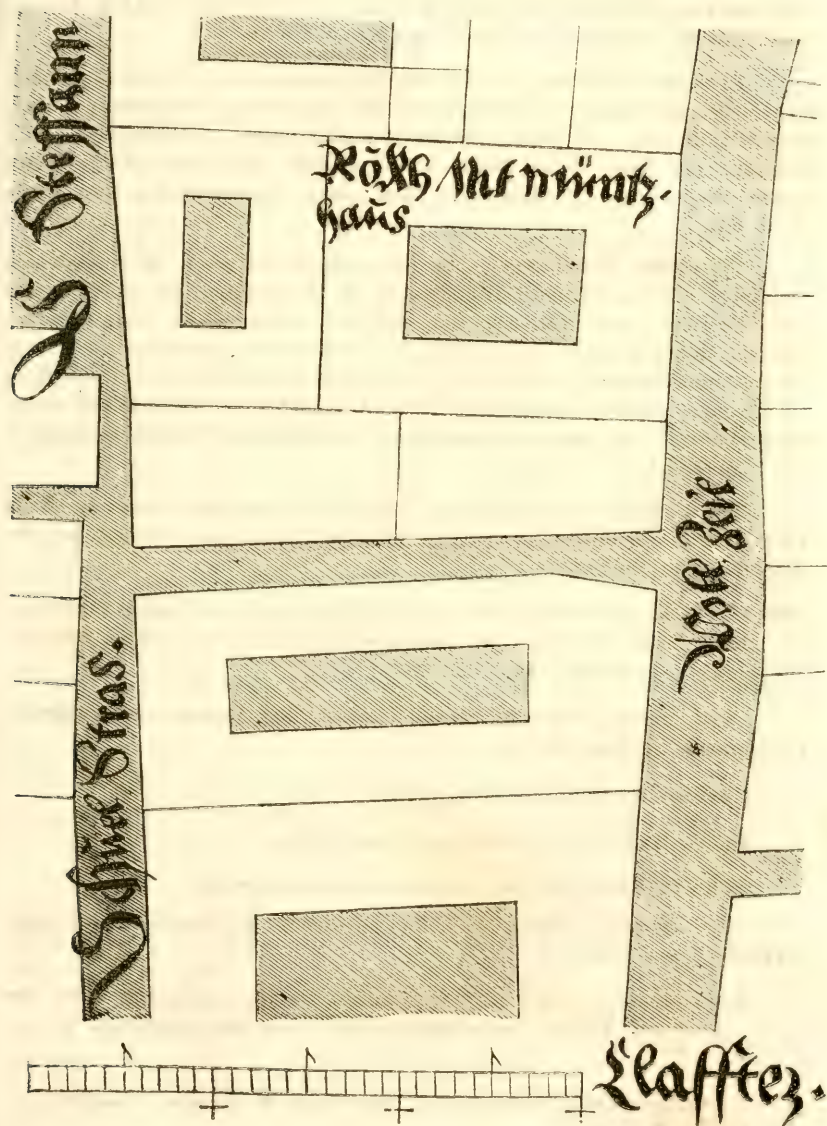 S Steffann
Röm: Kh: Mt müntz-
haus
Woll Zeil
Schuel Stras.
Claffter.